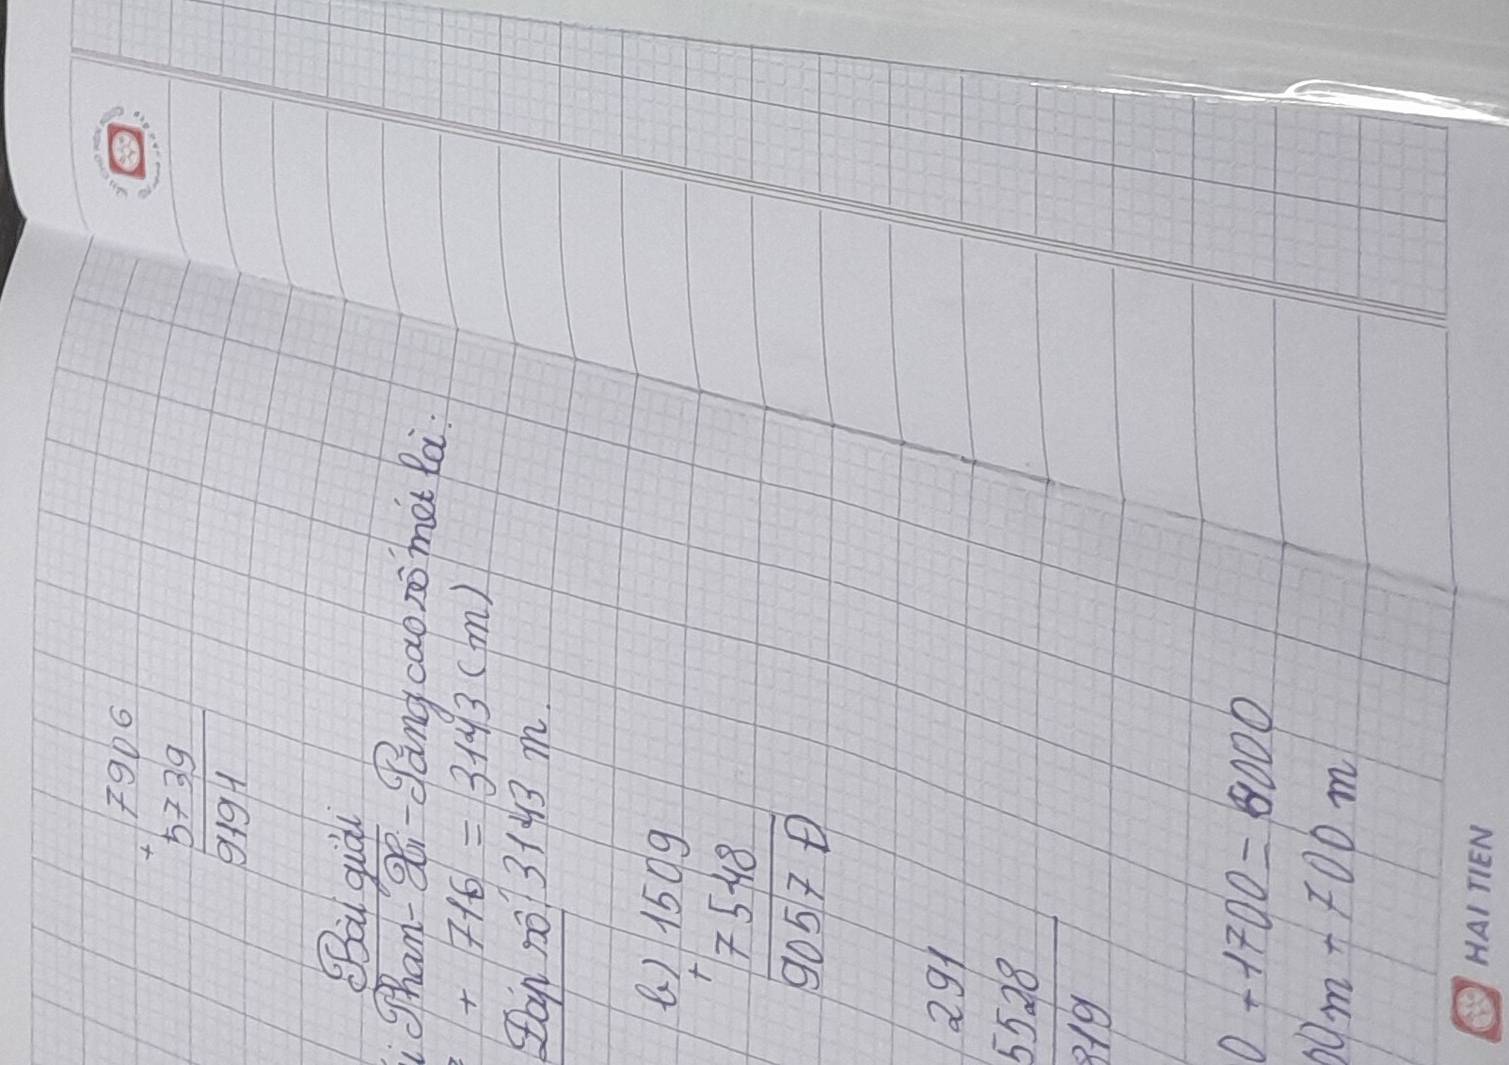 7906
+
5739
9191
Bài giải
Phan-Xi-Păng cao số mét là:
+ 716 = 3143 (m)
Đáp số 3143 m.
b) 1509
+
7548
9057 Đ
291
5528
819
0 + 1700 = 8000
00m + 700 m
HAI TIEN